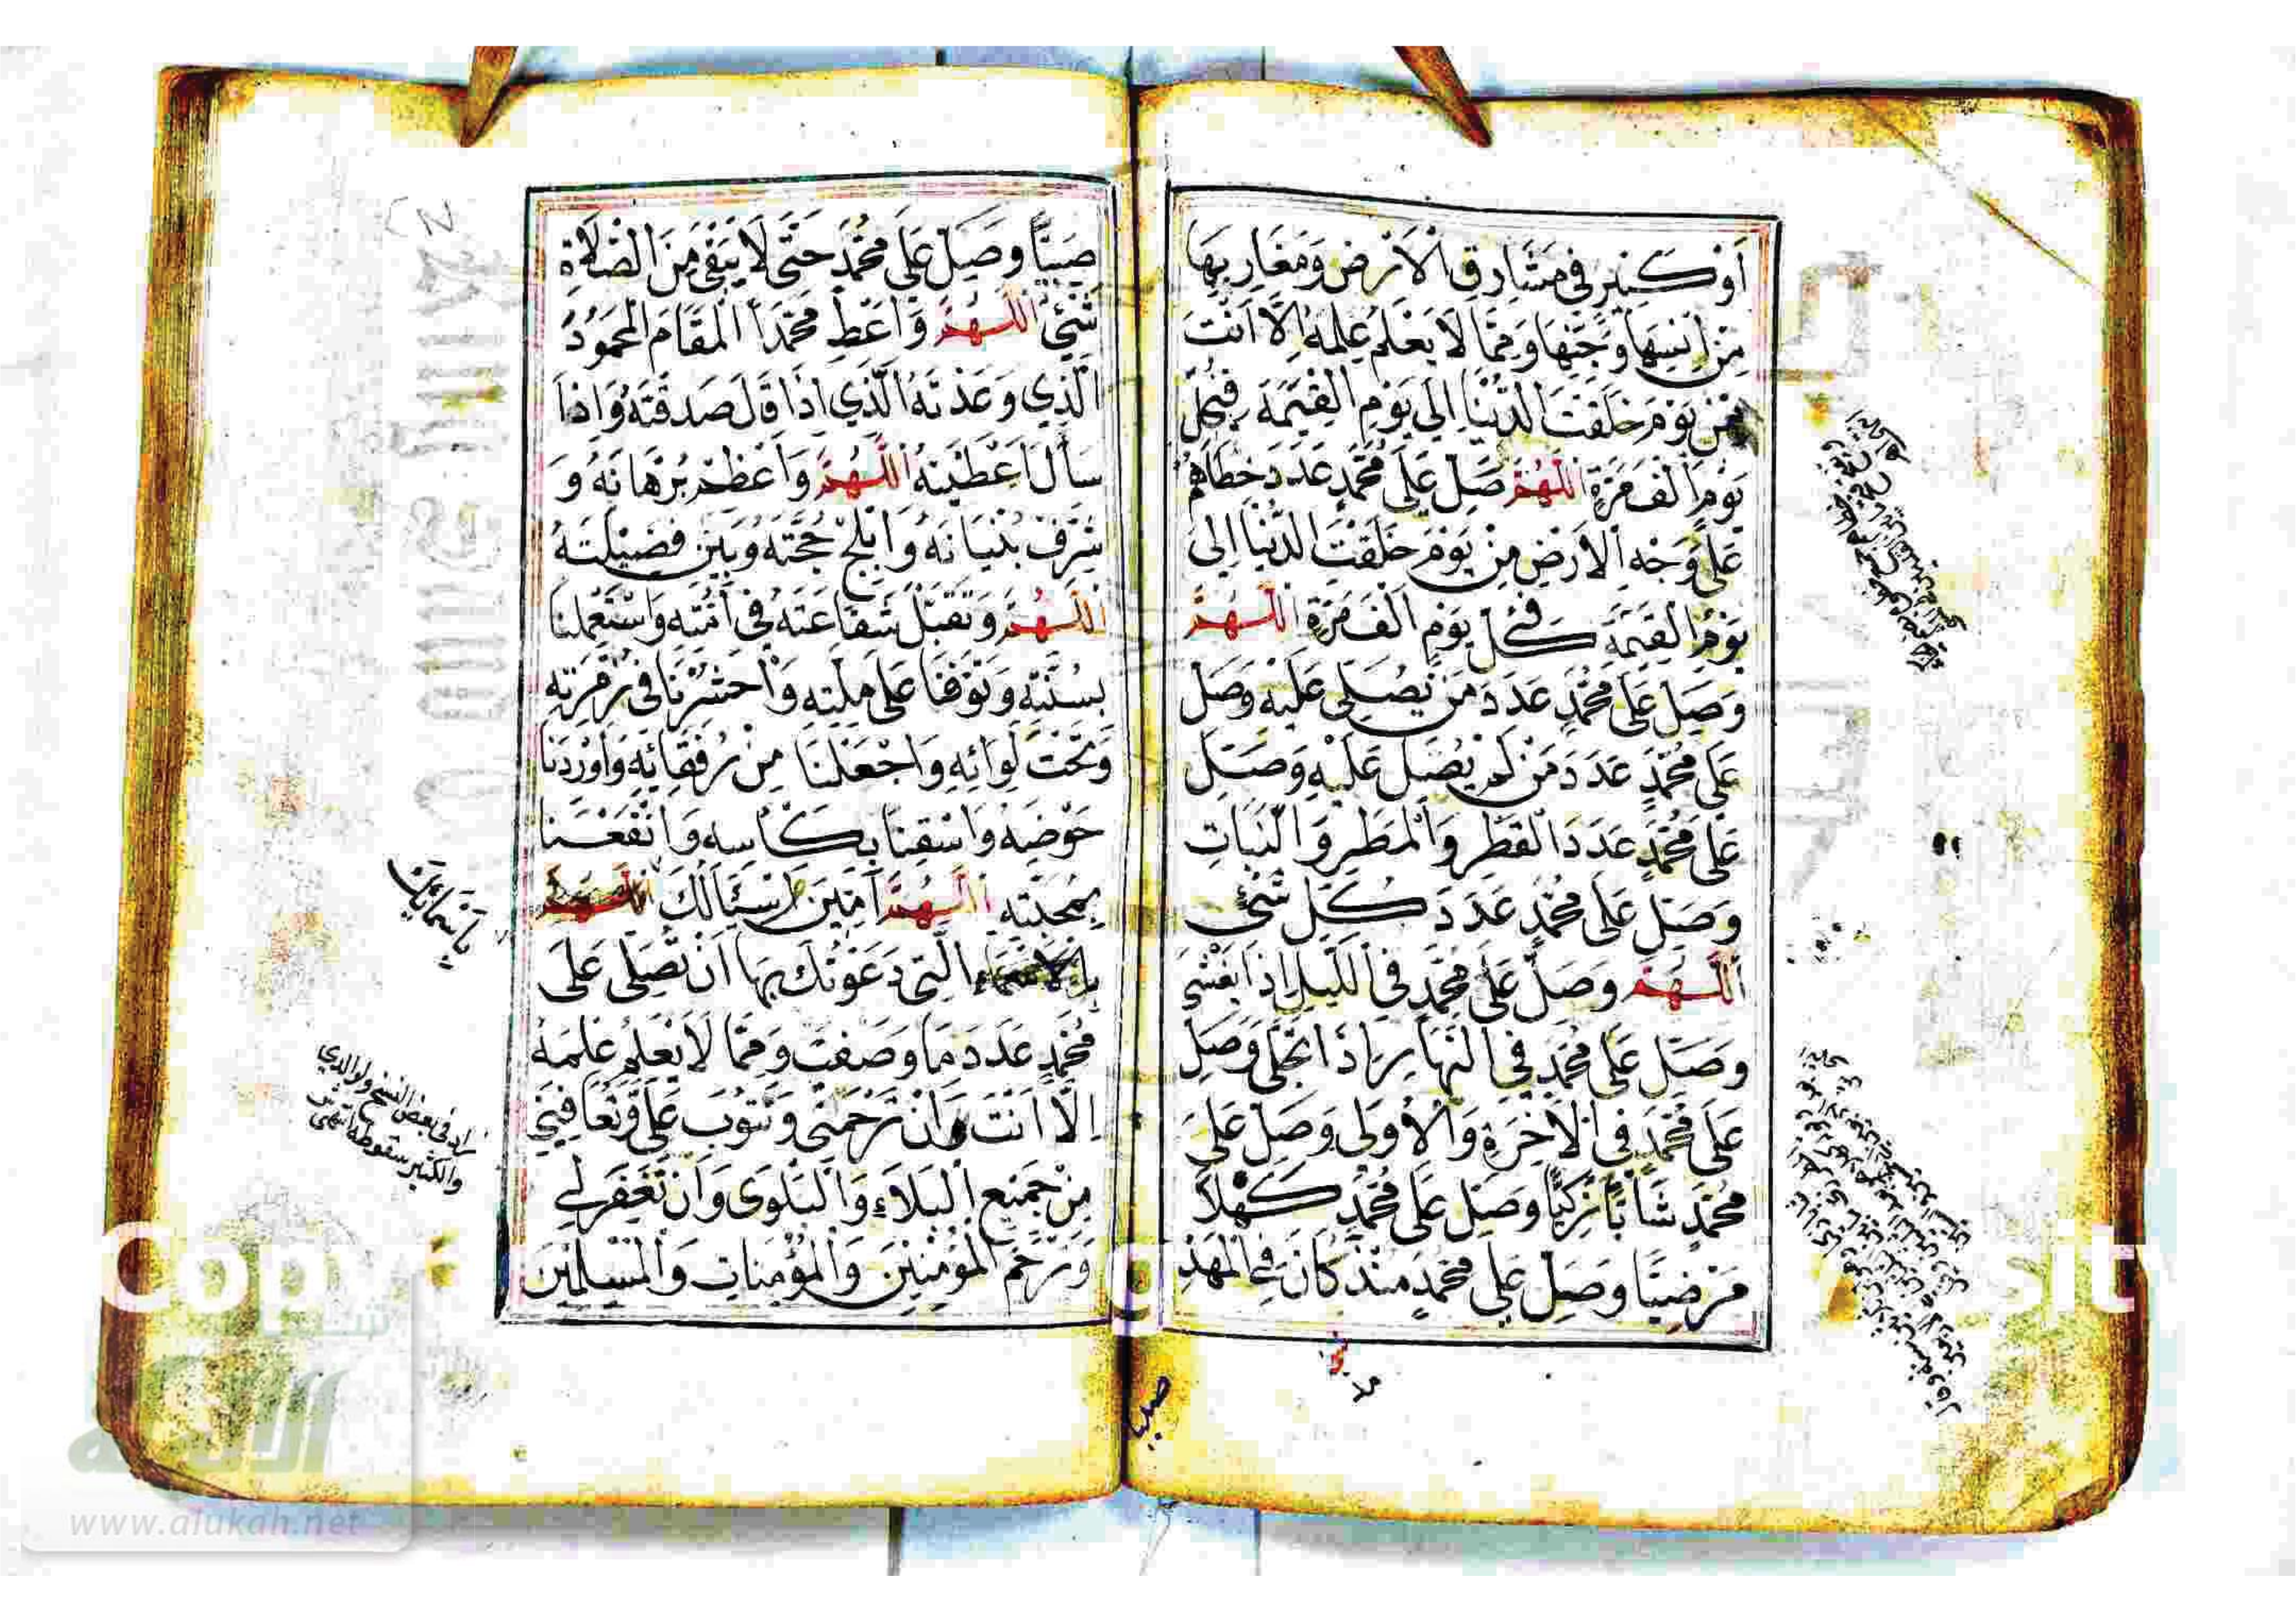 اَوْ كَبِيْرٍ فِي مَشَارِقِ الْاَرْضِ وَمَغَارِبِهَا
مِنْ اِنْسِهَا وَجِنِّهَا وَمِمَّا لَا يَعْلَمُ عِلْمَهُ اِلَّا اَنْتَ
مِنْ يَوْمَ خَلَقْتَ الدُّنْيَا اِلَى يَوْمِ الْقِيٰمَةِ فِي كُلِّ
يَوْمٍ اَلْفَ مَرَّةٍ اَللّٰهُمَّ صَلِّ عَلَى مُحَمَّدٍ عَدَدَ خُطَاهُمْ
عَلَى وَجْهِ الْاَرْضِ مِنْ يَوْمَ خَلَقْتَ الدُّنْيَا اِلَى
يَوْمِ الْقِيٰمَةِ فِي كُلِّ يَوْمٍ اَلْفَ مَرَّةٍ اَللّٰهُمَّ
وَصَلِّ عَلَى مُحَمَّدٍ عَدَدَ مَنْ يُصَلِّى عَلَيْهِ وَصَلِّ
عَلَى مُحَمَّدٍ عَدَدَ مَنْ لَمْ يُصَلِّ عَلَيْهِ وَصَلِّ
عَلَى مُحَمَّدٍ عَدَدَ الْقَطْرِ وَالْمَطَرِ وَالنَّبَاتِ
وَصَلِّ عَلَى مُحَمَّدٍ عَدَدَ كُلِّ شَيْءٍ
اَللّٰهُمَّ وَصَلِّ عَلَى مُحَمَّدٍ فِي اللَّيْلِ اِذَا يَغْشَى
وَصَلِّ عَلَى مُحَمَّدٍ فِي النَّهَارِ اِذَا تَجَلَّى وَصَلِّ
عَلَى مُحَمَّدٍ فِي الْاٰخِرَةِ وَالْاُوْلَى وَصَلِّ عَلَى
مُحَمَّدٍ شَابًّا زَكِيًّا وَصَلِّ عَلَى مُحَمَّدٍ كَهْلًا
مَرْضِيًّا وَصَلِّ عَلَى مُحَمَّدٍ مُنْذُ كَانَ فِي الْمَهْدِ
صبيا
صَبِيًّا وَصَلِّ عَلَى مُحَمَّدٍ حَتَّى لَا يَبْقَى مِنَ الصَّلَاةِ
شَيْءٌ اَللّٰهُمَّ وَاَعْطِ مُحَمَّدًا الْمَقَامَ الْمَحْمُوْدَ
الَّذِي وَعَدْتَهُ الَّذِي اِذَا قَالَ صَدَّقْتَهُ وَاِذَا
سَأَلَ اَعْطَيْتَهُ اَللّٰهُمَّ وَاَعْظِمْ بُرْهَانَهُ وَ
شَرِّفْ بُنْيَانَهُ وَاَبْلِجْ حُجَّتَهُ وَبَيِّنْ فَضِيْلَتَهُ
اَللّٰهُمَّ وَتَقَبَّلْ شَفَاعَتَهُ فِي اُمَّتِهِ وَاسْتَعْمِلْنَا
بِسُنَّتِهِ وَتَوَفَّنَا عَلَى مِلَّتِهِ وَاحْشُرْنَا فِي زُمْرَتِهِ
وَتَحْتَ لِوَائِهِ وَاجْعَلْنَا مِنْ رُفَقَائِهِ وَاَوْرِدْنَا
حَوْضَهُ وَاسْقِنَا بِكَأْسِهِ وَانْفَعْنَا
بِمَحَبَّتِهِ اَللّٰهُمَّ آمِيْنَ اَسْئَالُكَ اَللّٰهُمَّ
بِالْاَسْمَاءِ الَّتِي دَعَوْتُكَ بِهَا اَنْ تُصَلِّىَ عَلَى
مُحَمَّدٍ عَدَدَ مَا وَصَفْتُ وَمِمَّا لَا يَعْلَمُ عِلْمَهُ
اِلَّا اَنْتَ وَاَنْ تَرْحَمَنِي وَتَتُوْبَ عَلَيَّ وَتُعَافِيَنِي
مِنْ جَمِيْعِ الْبَلَاءِ وَالْبَلْوَى وَاَنْ تَغْفِرَ لِي
وَتَرْحَمَ الْمُؤْمِنِيْنَ وَالْمُؤْمِنَاتِ وَالْمُسْلِمِيْنَ
بِاَسْمَائِكَ
زاد في بعض النسخ ولوالدي
والكثير سقوطه انتهى
شبكة
الألوكة
www.alukah.net